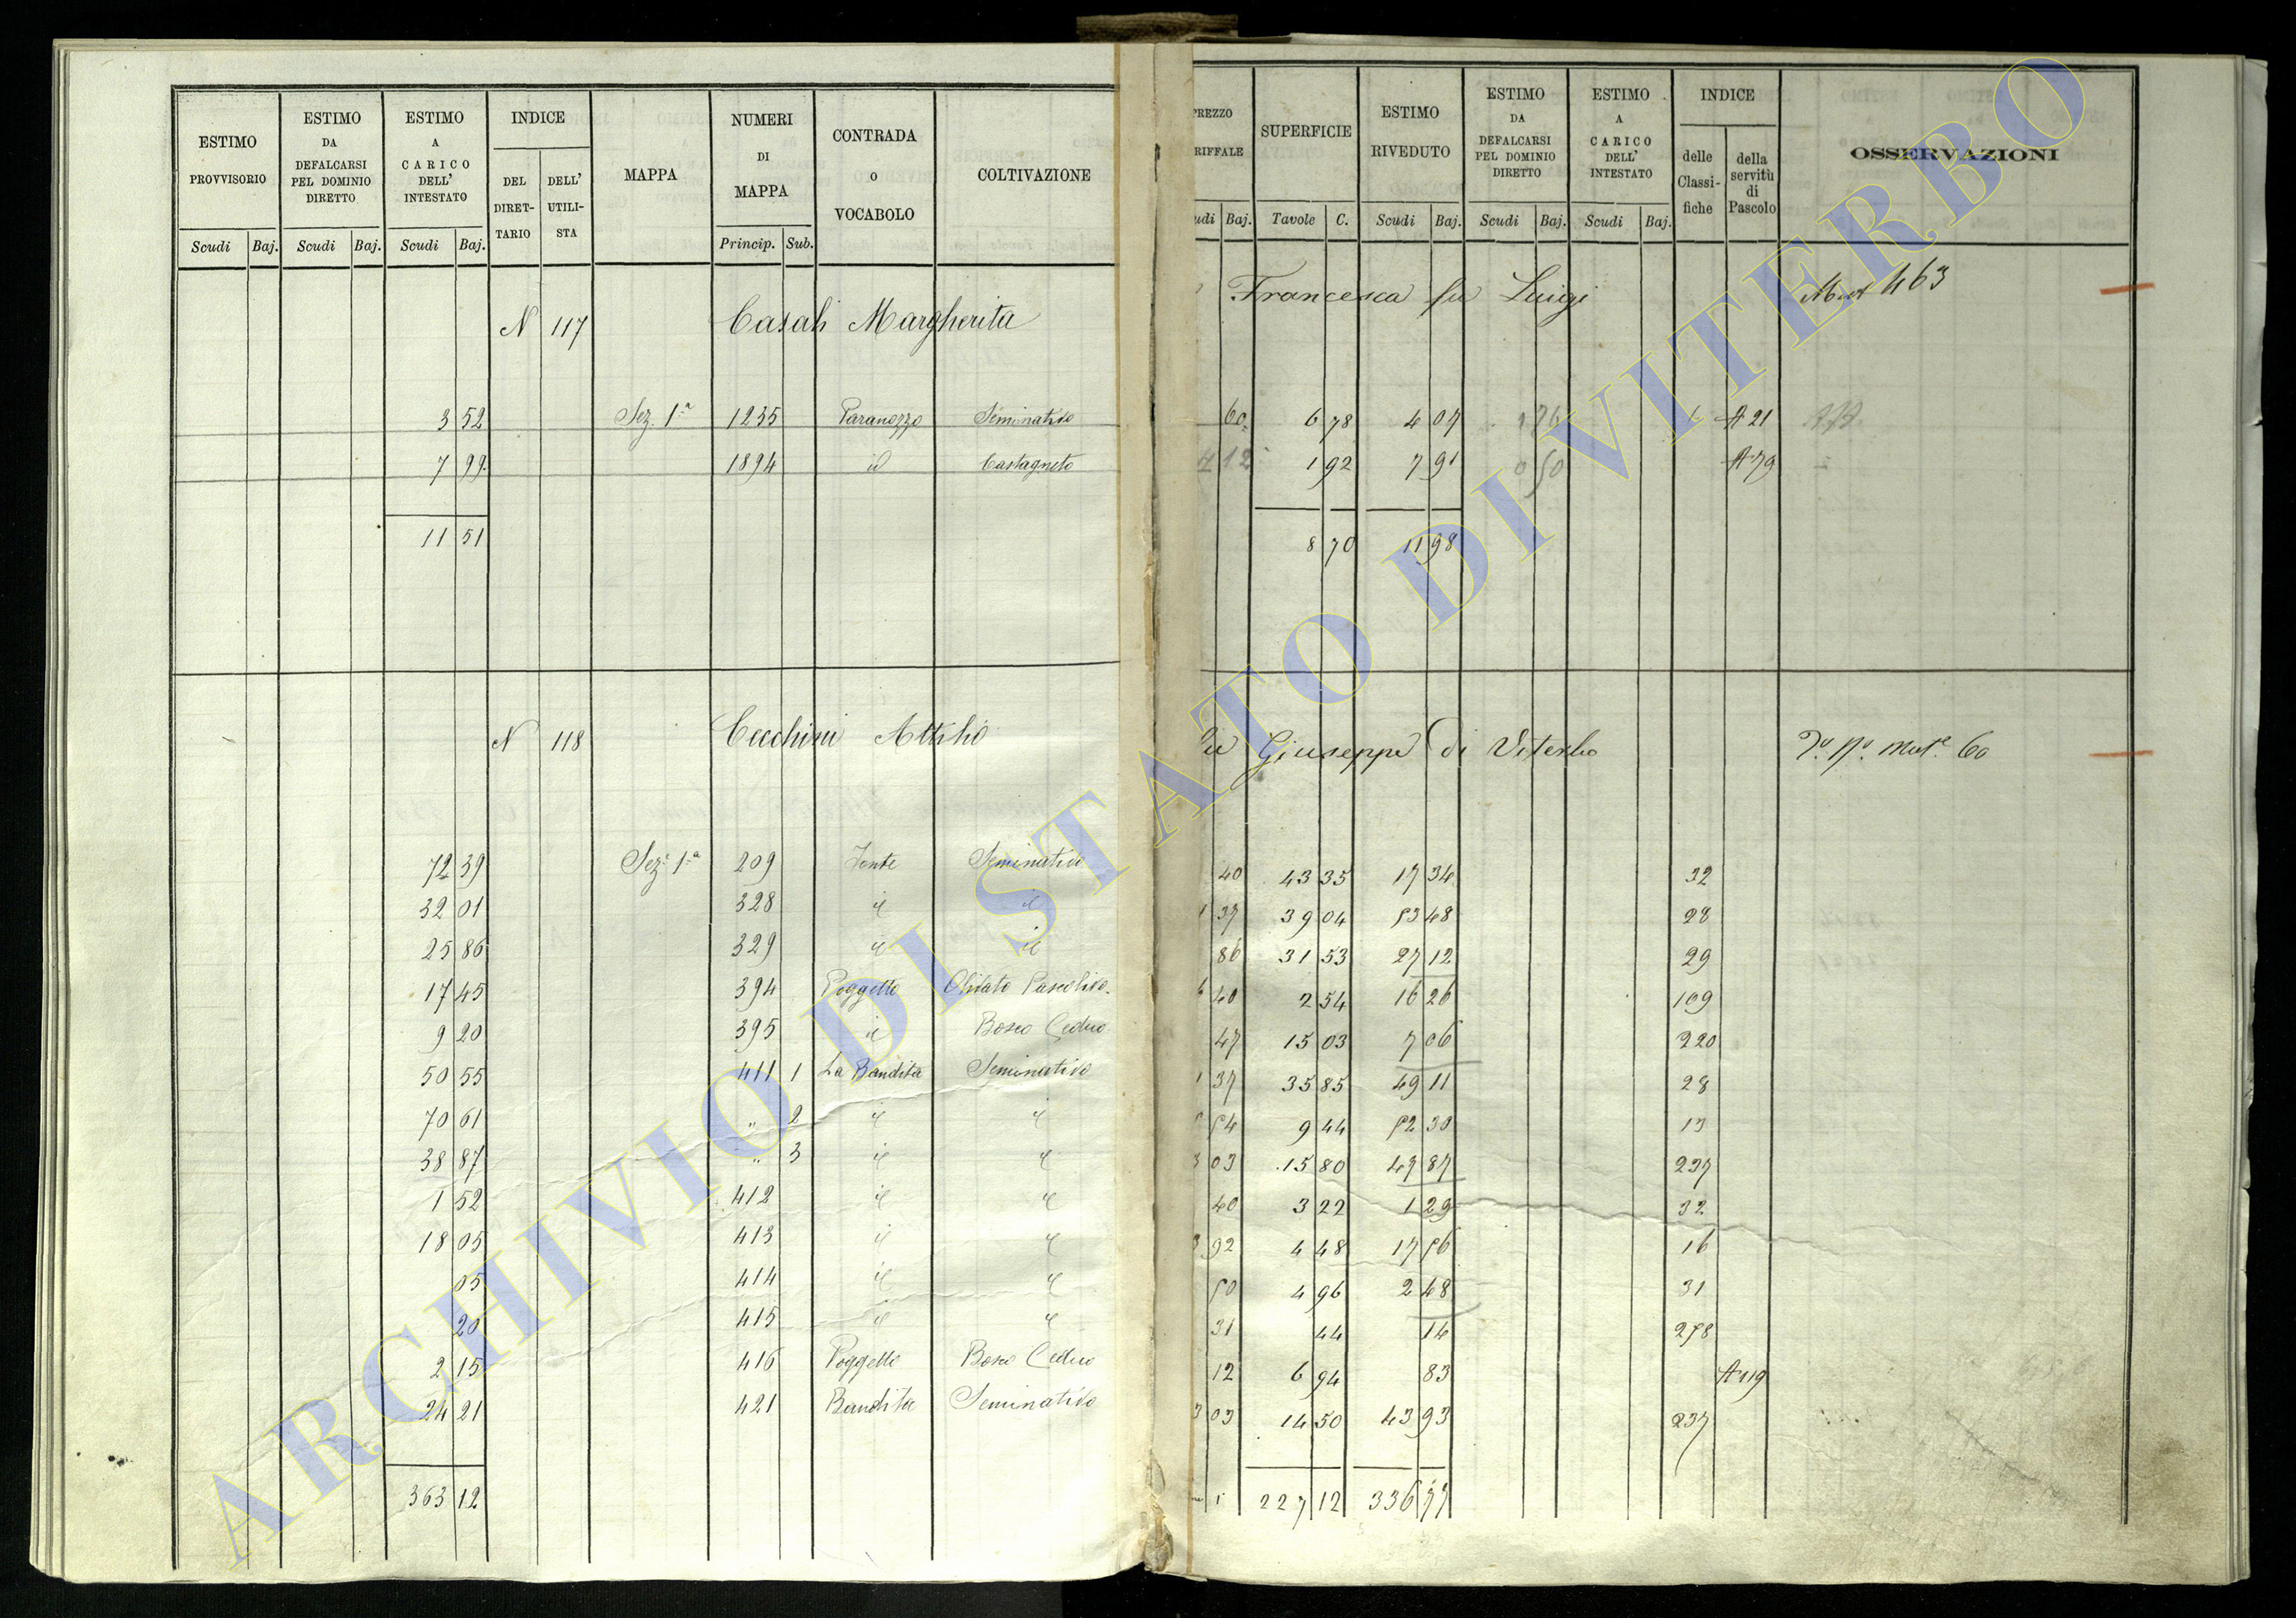 ESTIMO PROVVISORIO Scudi Baj.
ESTIMO DA DEFALCARSI PEL DOMINIO DIRETTO Scudi Baj.
ESTIMO A CARICO DELL' INTESTATO Scudi Baj.
INDICE DEL DIRET-TARIO DELL' UTILI-STA
MAPPA
NUMERI DI MAPPA Princip. Sub.
CONTRADA o VOCABOLO
COLTIVAZIONE
PREZZO RIFFALE udi Baj.
SUPERFICIE Tavole C.
ESTIMO RIVEDUTO Scudi Baj.
ESTIMO DA DEFALCARSI PEL DOMINIO DIRETTO Scudi Baj.
ESTIMO A CARICO DELL' INTESTATO Scudi Baj.
INDICE delle Classi-fiche della servitù di Pascolo
OSSERVAZIONI
N 117 Casali Margherita Francesca fu Luigi Mut 463
3 52 Sez. 1ª 1235 Paranozzo Seminativo 60 6 78 4 07 1 A 21
7 99 1894 id Castagneto 4 12 1 92 7 91 0 50 A 79
11 51 8 70 11 98
N 118 Cecchini Attilio di Giuseppe di Viterbo Mut. 60
72 39 Sez. 1ª 209 Fonte Seminativo 40 43 35 17 34 32
32 01 328 id id 1 37 39 04 53 48 28
25 86 329 id id 86 31 53 27 12 29
17 45 394 Poggetto Olivato Pascolivo 6 40 2 54 16 26 109
9 20 395 id Bosco Ceduo 47 15 03 7 06 220
50 55 411 1 La Bandita Seminativo 1 37 35 85 49 11 28
70 61 " 2 id id 5 54 9 44 52 30 13
38 87 " 3 id id 3 03 15 80 47 87 237
1 52 412 id id 40 3 22 1 29 32
18 05 413 id id 3 92 4 48 17 56 16
05 414 id id 50 4 96 2 48 31
20 415 id id 31 44 14 278
2 15 416 Poggetto Bosco Ceduo 12 6 94 83 A 119
24 21 421 Bandita Seminativo 3 03 14 50 43 93 237
363 12 227 12 336 77
ARCHIVIO DI STATO DI VITERBO